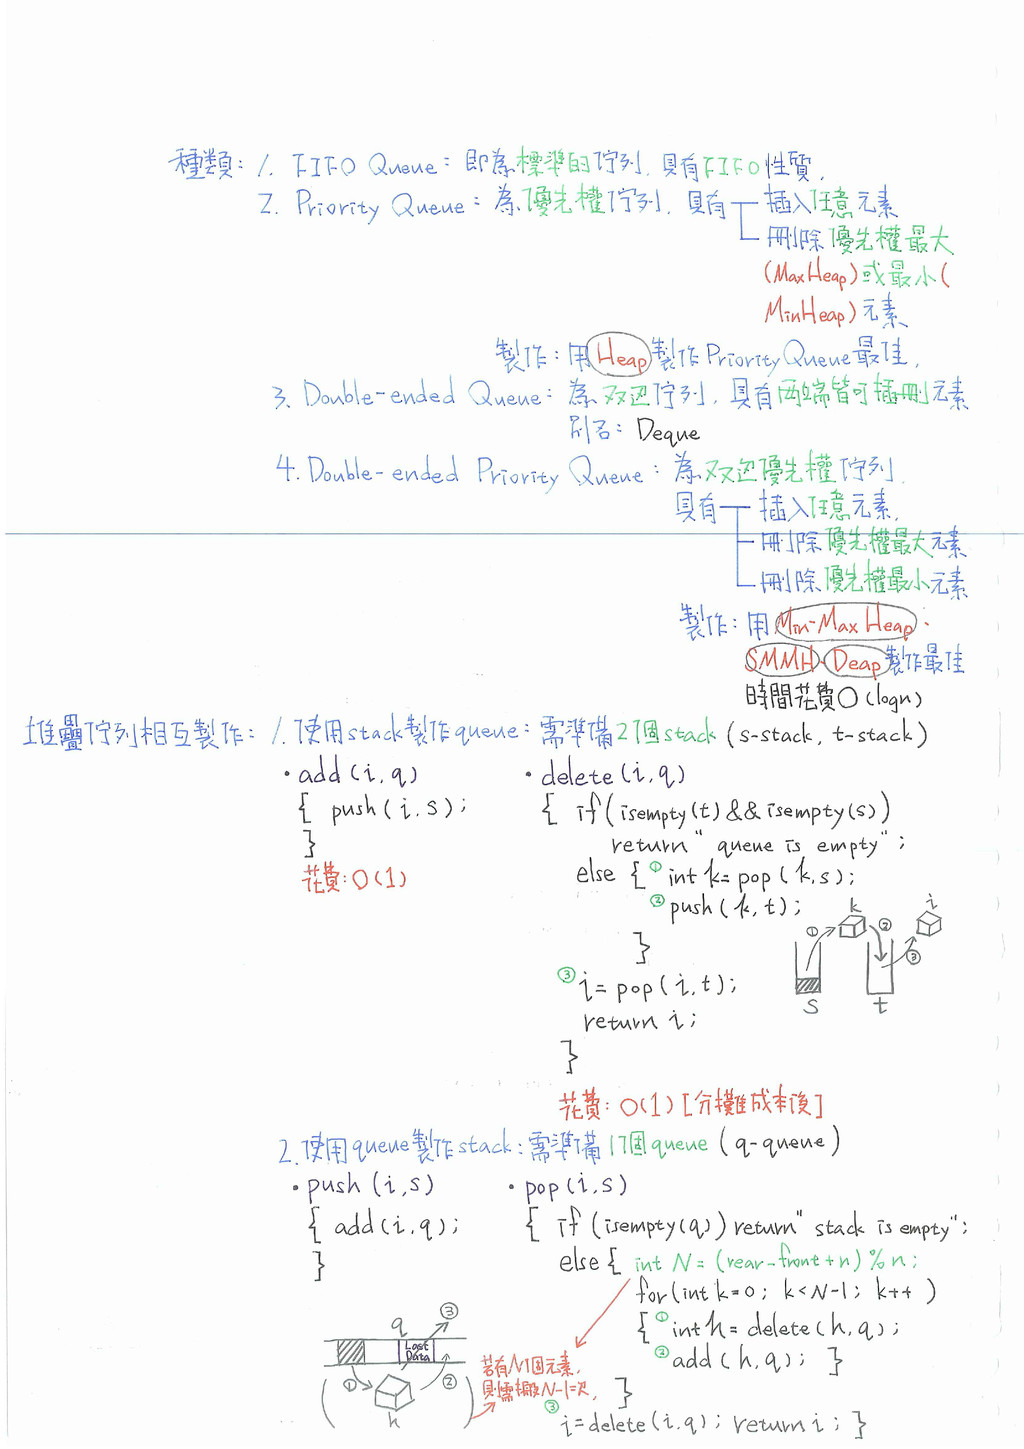 種類：1. FIFO Queue：即為標準的佇列, 具有FIFO性質,
2. Priority Queue：為優先權佇列, 具有 插入任意元素
刪除優先權最大
(MaxHeap)或最小(
MinHeap)元素
製作：用Heap製作Priority Queue最佳,
3. Double-ended Queue：為双边佇列, 具有兩端皆可插刪元素
別名：Deque
4. Double-ended Priority Queue：為双边優先權佇列,
具有 插入任意元素,
刪除優先權最大元素
刪除優先權最小元素
製作：用Min-Max Heap、
SMMH、Deap製作最佳
時間花費O(logn)
堆疊佇列相互製作：1. 使用stack製作queue：需準備2個stack (s-stack, t-stack)
• add(i,q)
{ push(i,s);
}
花費：O(1)
• delete(i,q)
{ if(isempty(t)&&isempty(s))
return "queue is empty";
else { ① int k=pop(k,s);
② push(k,t);
}
③ i=pop(i,t);
return i;
}
① k ② i ③
s t
花費：O(1)[分攤成本後]
2. 使用queue製作stack：需準備1個queue (q-queue)
• push(i,s)
{ add(i,q);
}
• pop(i,s)
{ if(isempty(q)) return "stack is empty";
else { int N=(rear-front+n)%n;
for(int k=0; k<N-1; k++)
{ ① int h=delete(h,q);
② add(h,q); }
}
③ i=delete(i,q); return i; }
q ③
Last
Data
① h ②
若有N個元素,
只需搬N-1次,